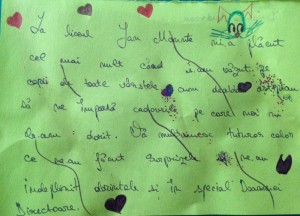 La liceul Jan Monnte mi-a plăcut
cel mai mult cand i-am văzut pe
copii de toate vârstele cum așteptau
să ne împartă cadourile pe care noi ni
le-am dorit. Vă mulțumesc tuturor celor
ce ne-au făcut surprizele ne-au
îndeplinit dorințele și în special Doamnei
Directoare.